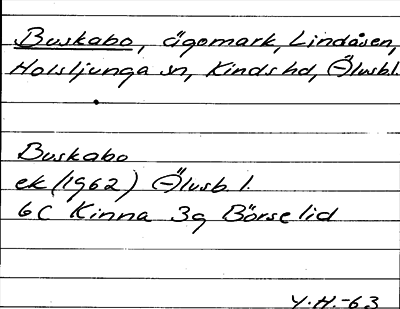 Buskabo, ägomark, Lindåsen,
Holsljunga sn, Kinds hd, Älvsb.l.
Buskabo
ek (1962) Älvsb. l.
6C Kinna 3g Börselid
Y.H.-63